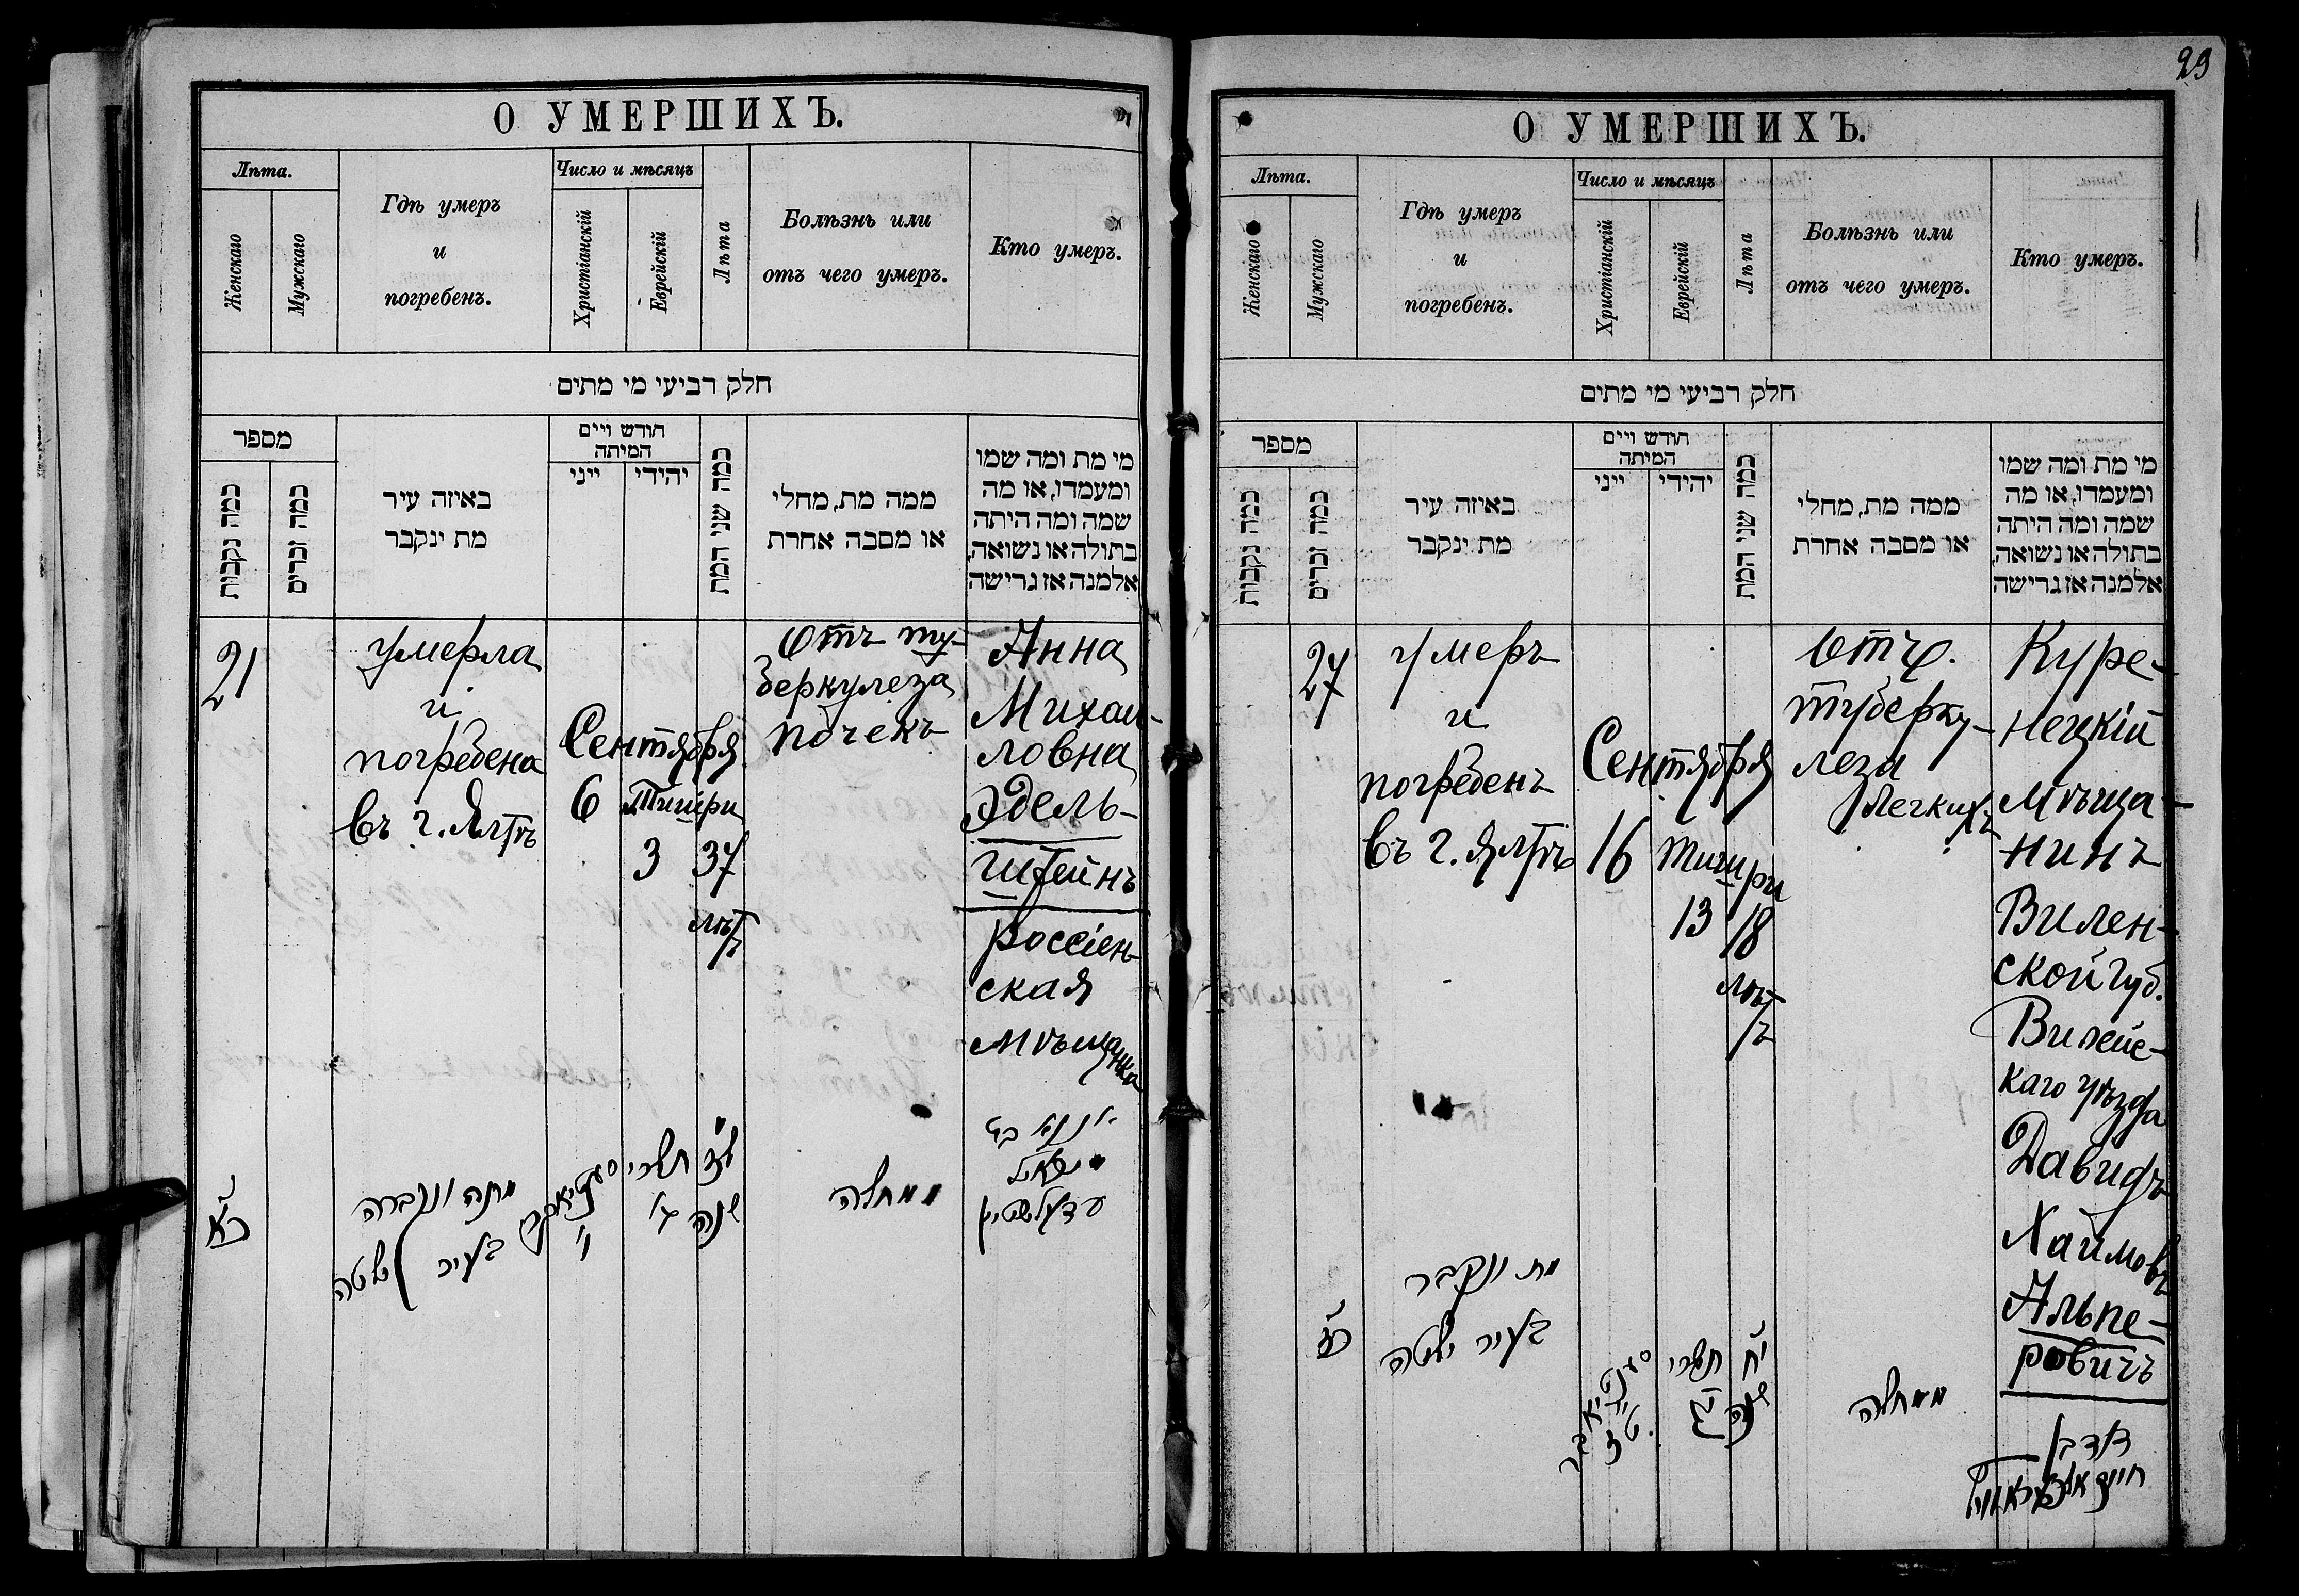 О УМЕРШИХЪ.
Лѣта.
Женскаго
Мужскаго
Гдѣ умеръ
и
погребенъ.
Число и мѣсяцъ
Христіанскій
Еврейскій
Лѣта
Болѣзнь или
отъ чего умеръ.
Кто умеръ.
חלק רביעי מי מתים
מספר
כמה נקבות
כמה זכרים
באיזה עיר
מת ינקבר
חודש ויים
המיתה
ייני
יהידי
כמה שני המת
ממה מת, מחלי
או מסבה אחרת
מי מת ומה שמו
ומעמדו, או מה
שמה ומה היתה
בתולה או נשואה,
אלמנה אז גרישה
21
умерла
и
погребена
въ г. Ялтѣ
Сентября
6
Тишри
3
37
лѣтъ
Отъ ту-
беркулеза
почекъ
Анна
Михаи-
ловна
Эдель-
штейнъ
россіен-
ская
мѣщанка
כא
מתה ונקברה
בעיר יאלטה
סעפטיאבר
ו'
תשרי
ג'
לז
שנה
ממחלה
אננא בת
מיכאל
עדעלשטיין
29
О УМЕРШИХЪ.
Лѣта.
Женскаго
Мужскаго
Гдѣ умеръ
и
погребенъ.
Число и мѣсяцъ
Христіанскій
Еврейскій
Лѣта
Болѣзнь или
отъ чего умеръ.
Кто умеръ.
חלק רביעי מי מתים
מספר
כמה נקבות
כמה זכרים
באיזה עיר
מת ינקבר
חודש ויים
המיתה
ייני
יהידי
כמה שני המת
ממה מת, מחלי
או מסבה אחרת
מי מת ומה שמו
ומעמדו, או מה
שמה ומה היתה
בתולה או נשואה,
אלמנה אז גרישה
27
умеръ
и
погребенъ
въ г. Ялтѣ
Сентября
16
Тишри
13
18
лѣтъ
отъ
туберку-
леза
легкихъ
Куре-
нецкій
мѣща-
нинъ
Вилен-
ской губ.
Вилейс-
каго уѣзда
Давидъ
Хаимовъ
Альпе-
ровичъ
כז
מת ונקבר
בעיר יאלטה
סעפטיאבר
טז
תשרי
יג
יח
שנה
ממחלה
דוד בן
חיים אלפעראוויץ